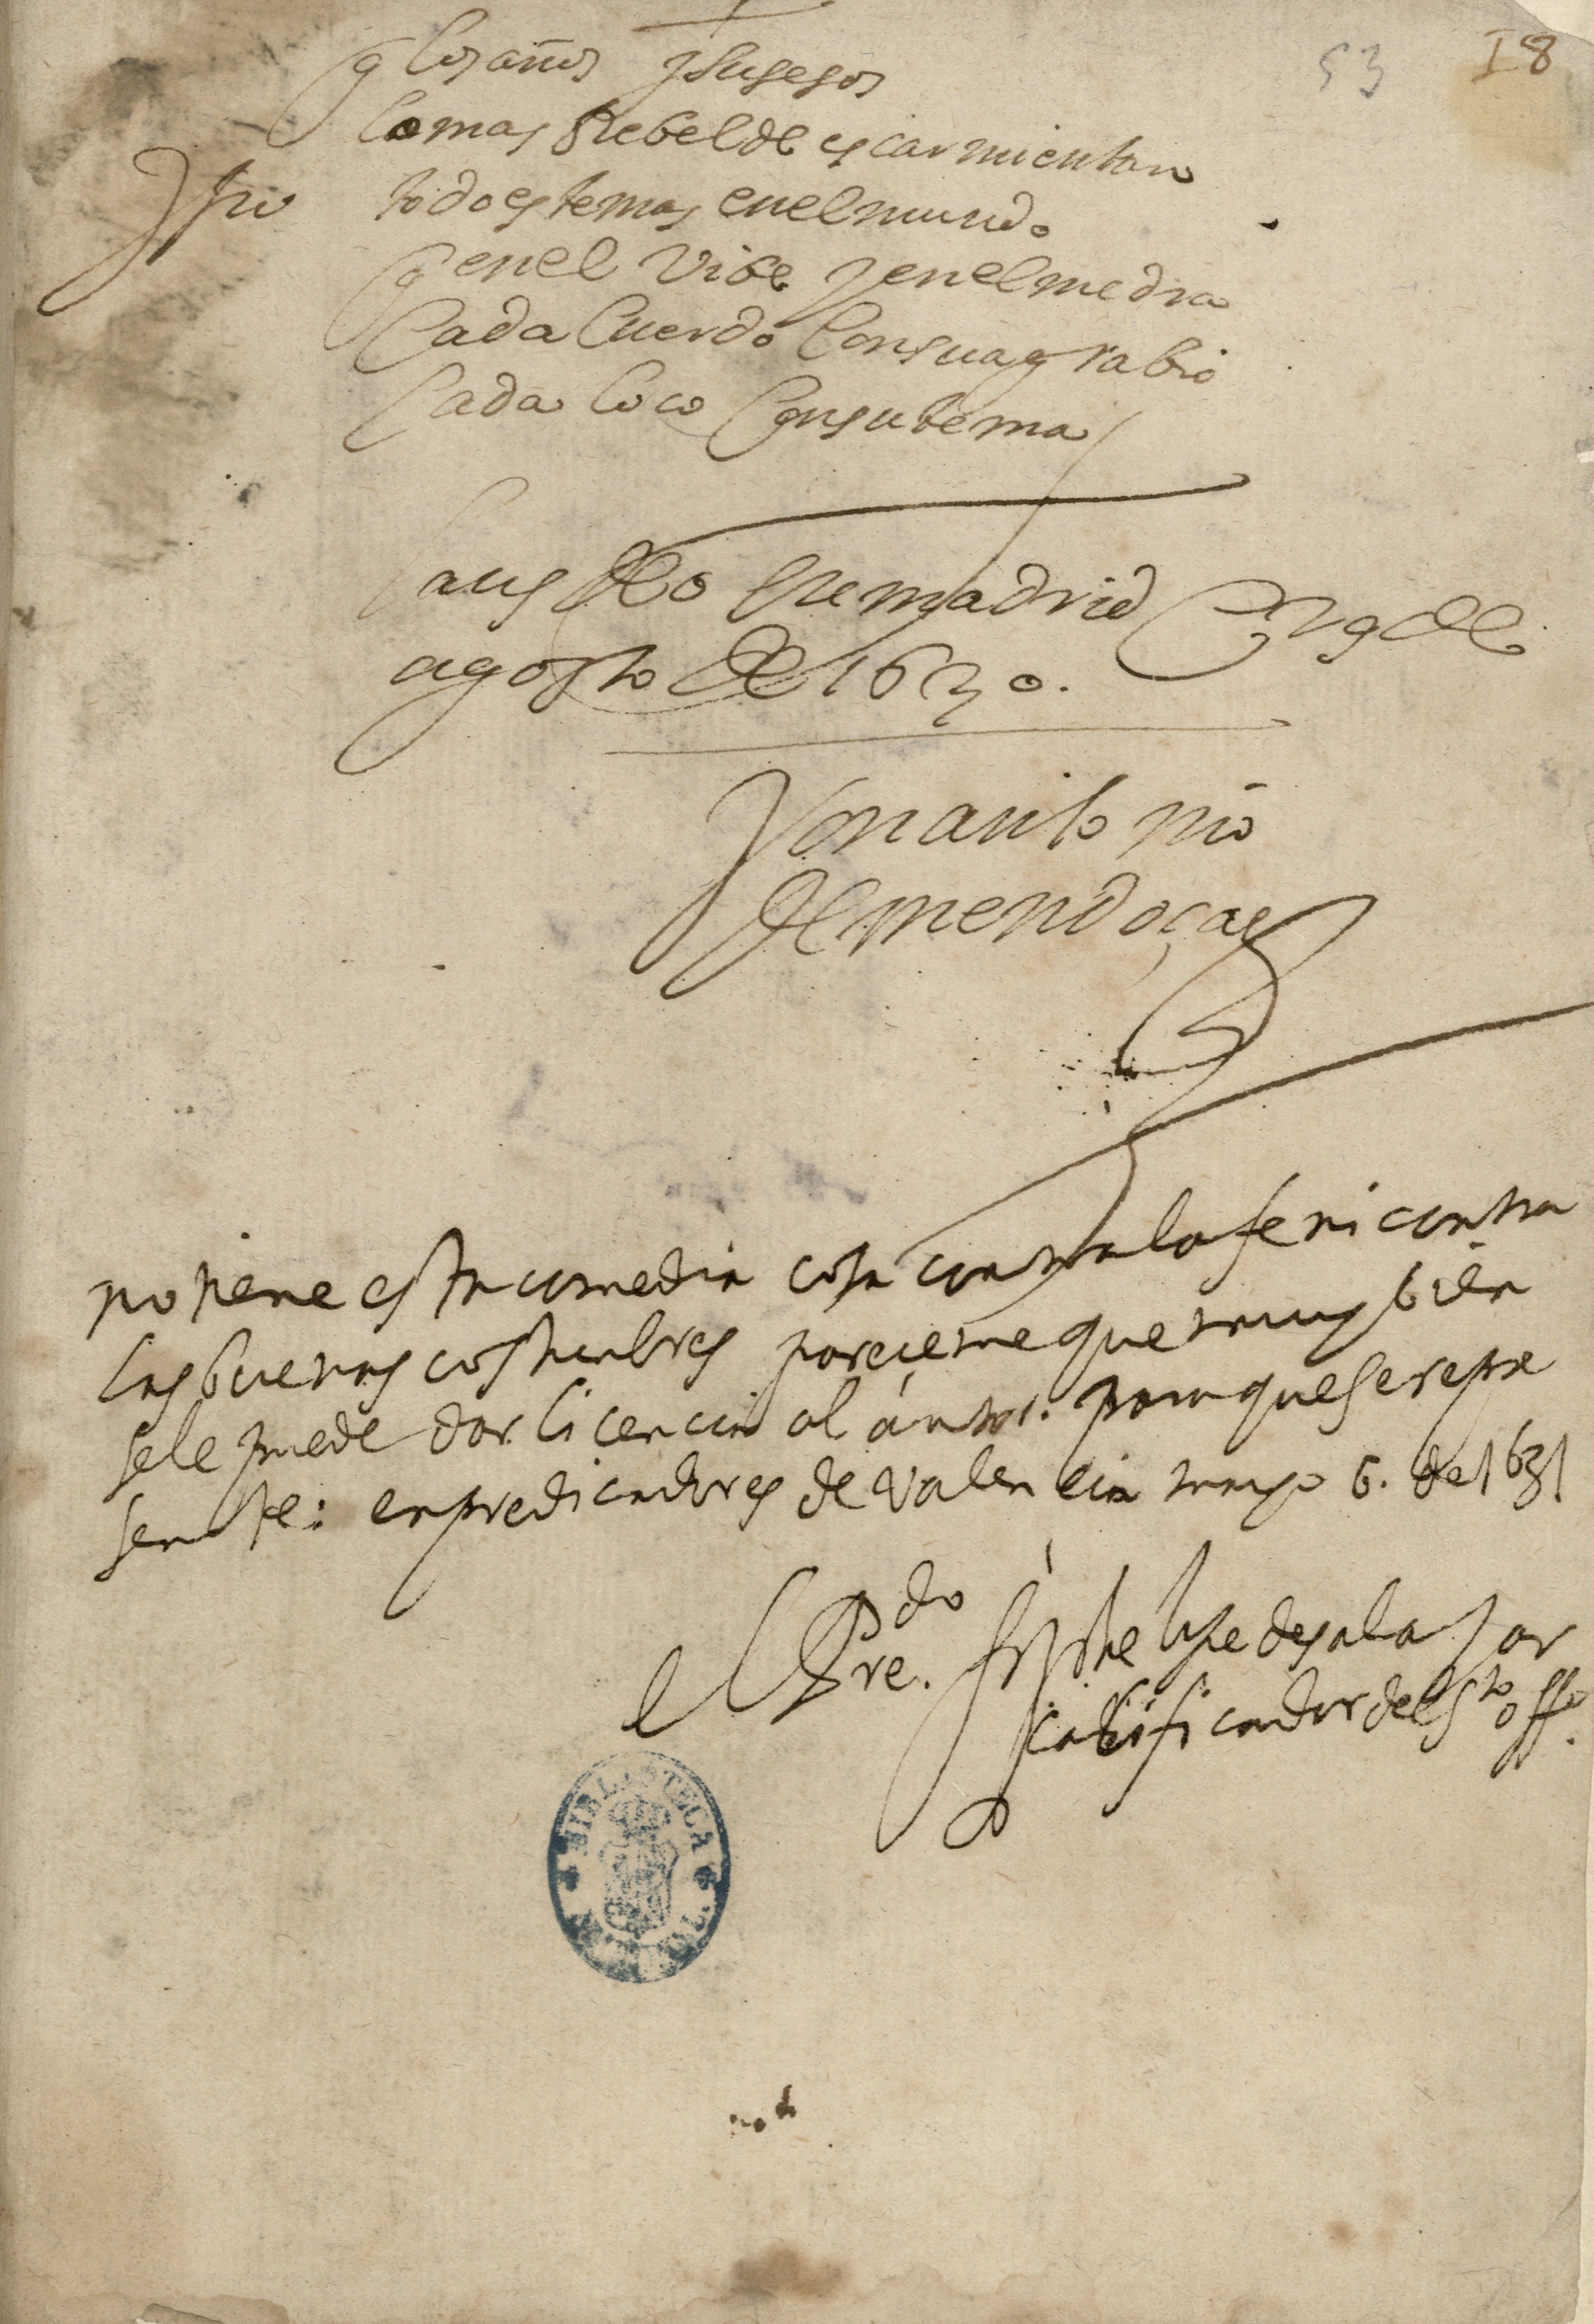 53 18
q los años y sucesos
lo mas Rebelde escarmientan
todo es temas en el mundo
q en el vibe y en el medra
Cada Cuerdo Con su agrabio
Cada loco Con su tema
laus deo En madrid
agosto de 1630.
Don antonio
de mendoça
no tiene esta comedia cosa contra la fe ni contra
las buenas costumbres pareceme que muy bien
se le puede dar licencia al autor. para que se repre
sente: en predicadores de Valencia mayo 6. de 1631
el Pre.do fr phelipe de salazar
calificador del S.to offo.
BIBLIOTECA NACIONAL